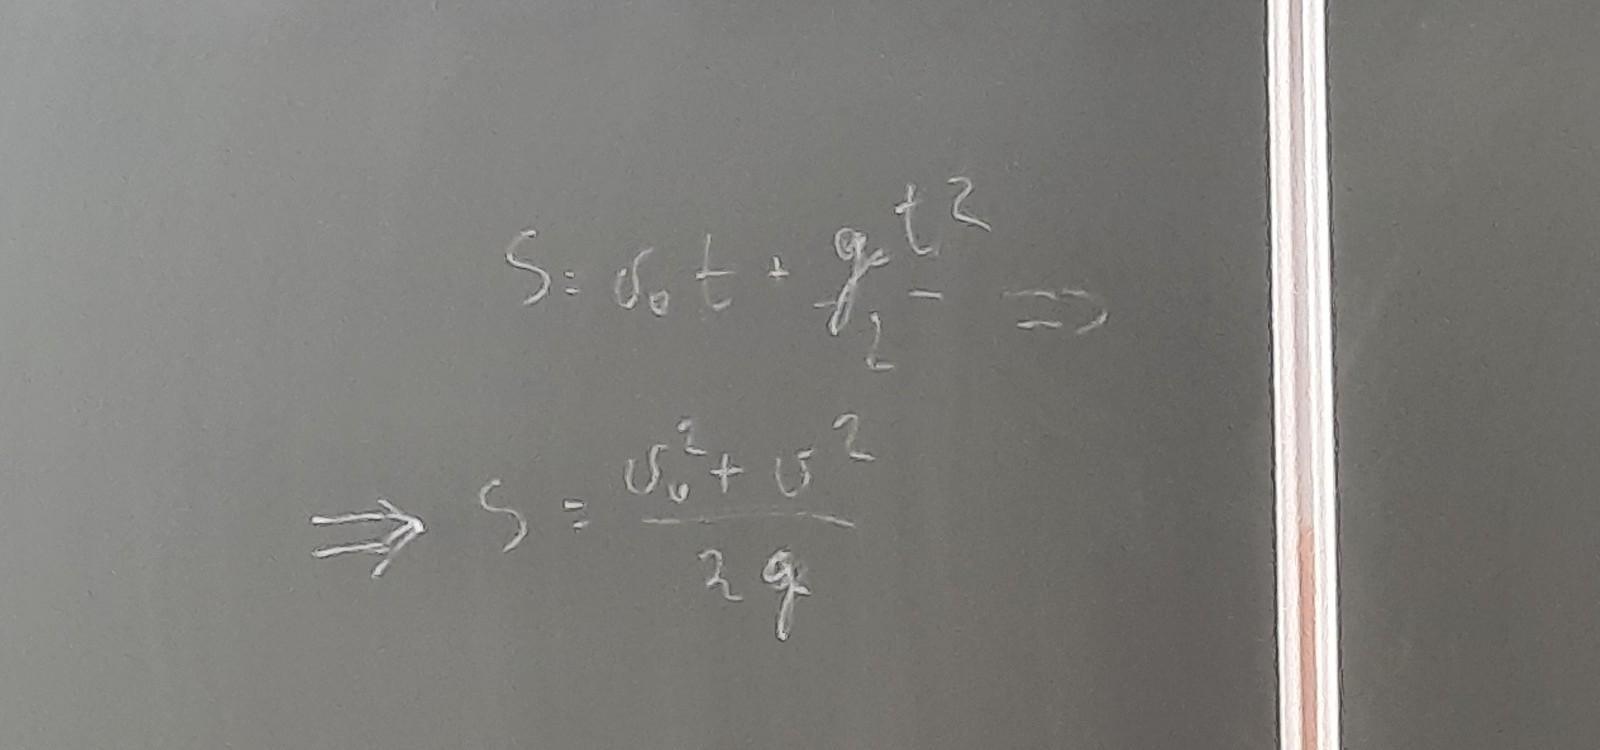 S = v₀t + gt²/2 ⇒
⇒ S = (v₀² + v²)/2g